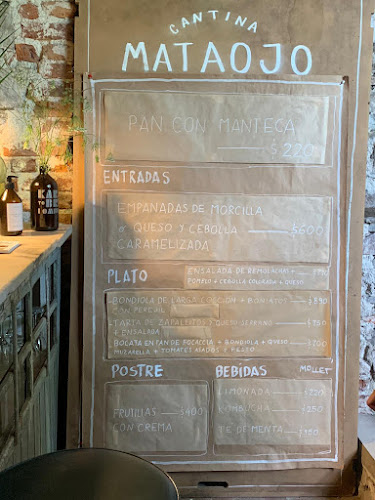 CANTINA
MATAOJO
PAN CON MANTECA
$220
ENTRADAS
EMPANADAS DE MORCILLA
O QUESO Y CEBOLLA $600
CARAMELIZADA
PLATO
ENSALADA DE REMOLACHAS +
POMELO + CEBOLLA COLORADA + QUESO
BONDIOLA DE LARGA COCCIÓN + BONIATOS $890
CON PEREJIL
TARTA DE ZAPALLITOS Y QUESO SERRANO
+ ENSALADA
BOCATA EN PAN DE FOCACCIA + BONDIOLA + QUESO
MUZARELLA + TOMATES ASADOS + PESTO
POSTRE
FRUTILLAS $400
CON CREMA
BEBIDAS MOLLET
LIMONADA
KOMBUCHA
TE DE MENTA